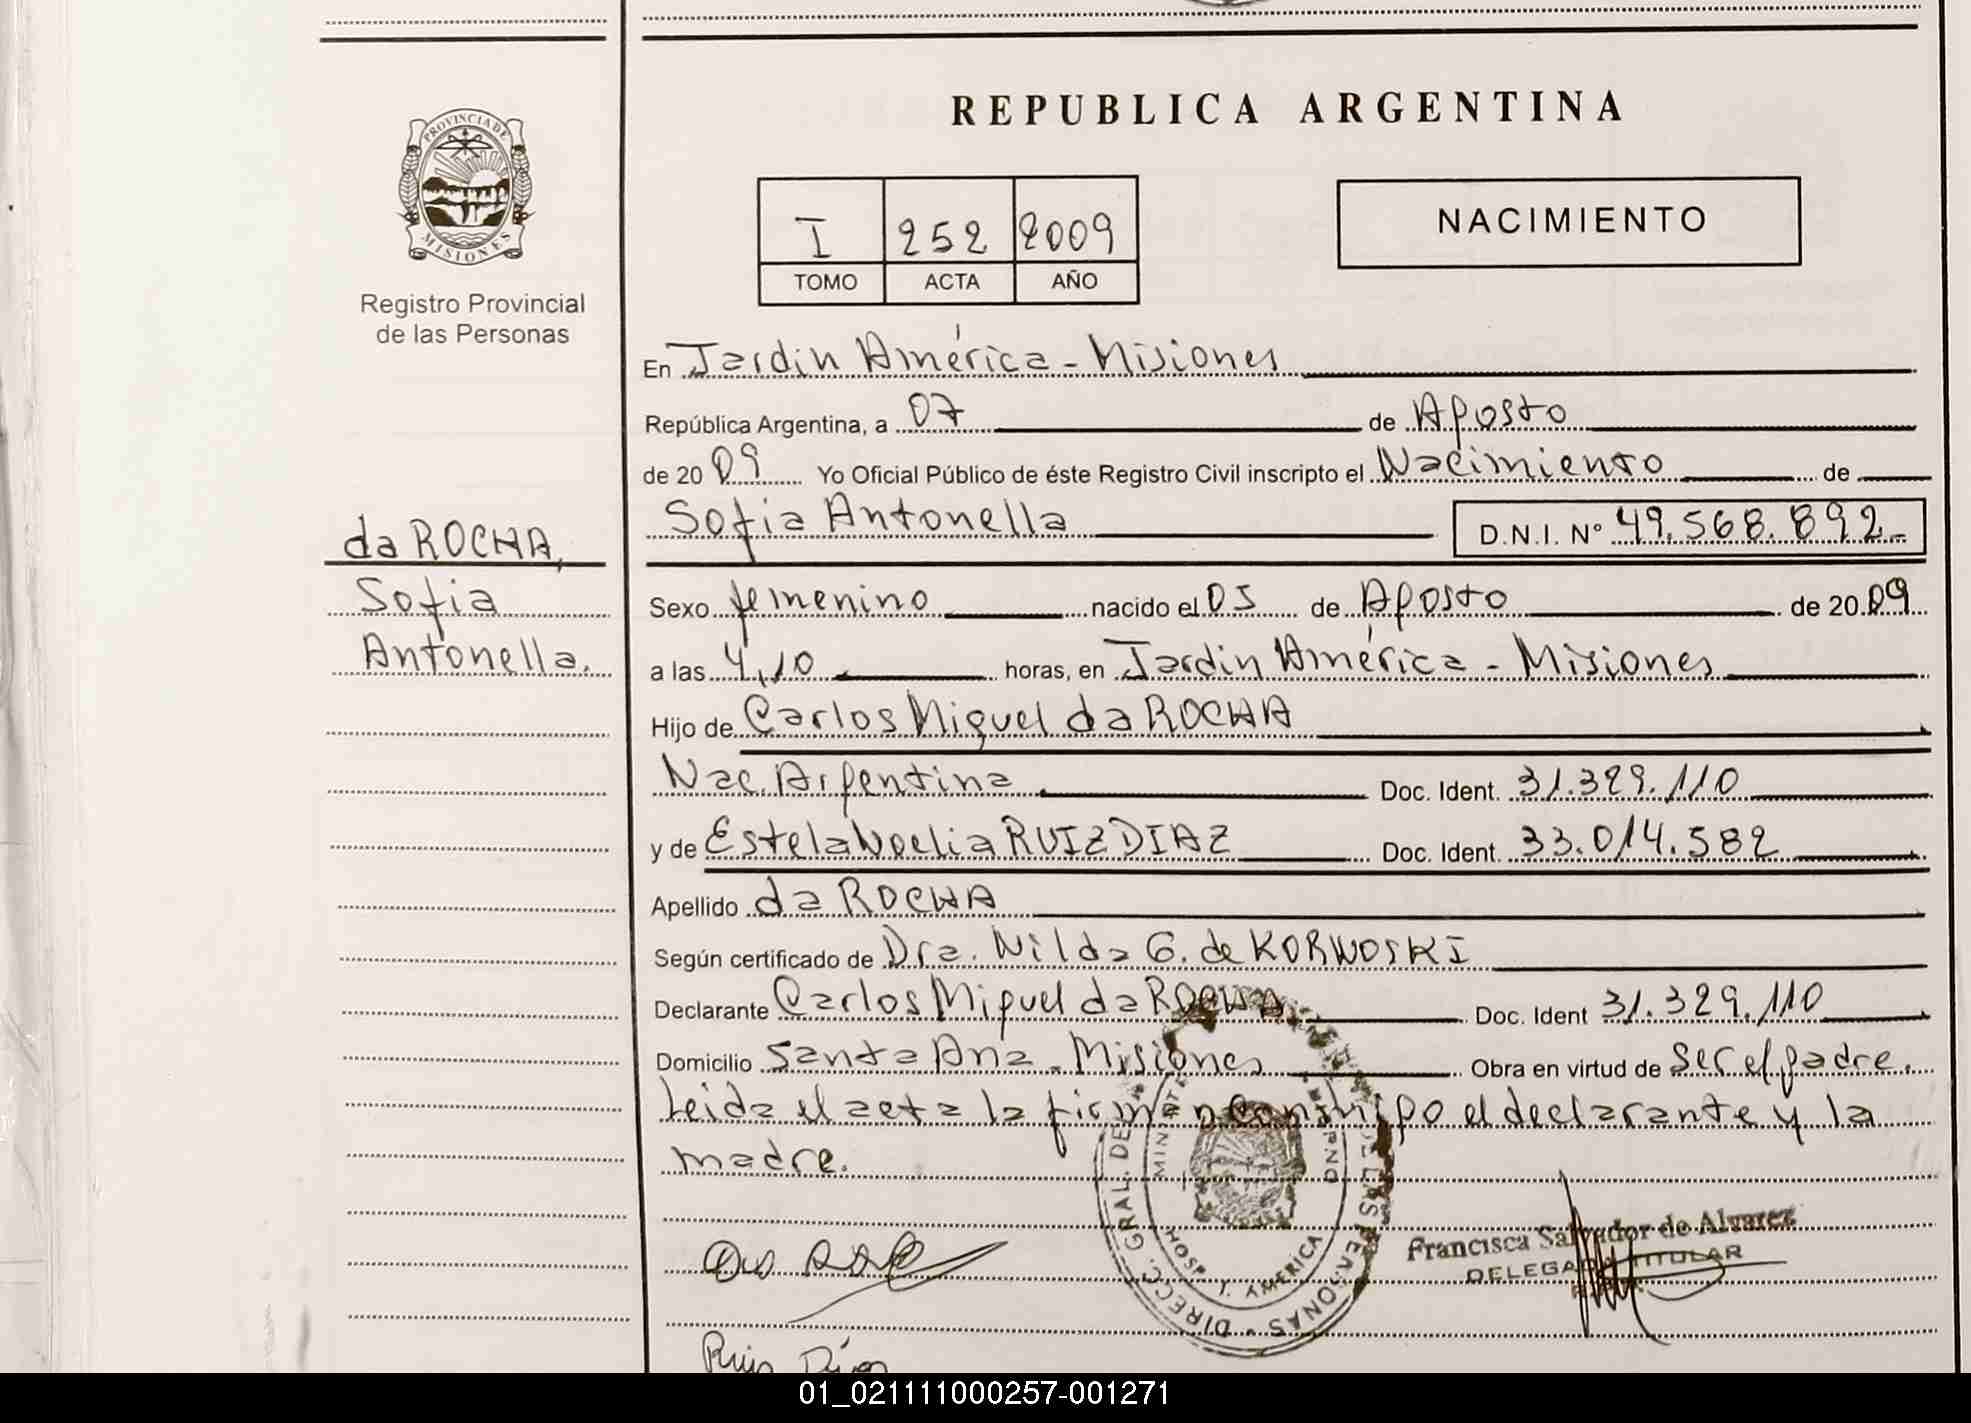 PROVINCIA DE
MISIONES
Registro Provincial
de las Personas
da ROCHA,
Sofia
Antonella.
REPUBLICA ARGENTINA
I 252 2009
TOMO ACTA AÑO
NACIMIENTO
En Jardin América - Misiones
República Argentina, a 07 de Agosto
de 2009 Yo Oficial Público de éste Registro Civil inscripto el Nacimiento de
Sofia Antonella D.N.I. Nº 49.568.892.-
Sexo femenino nacido el 05 de Agosto de 2009
a las 4,10 horas, en Jardin América - Misiones
Hijo de Carlos Miguel da ROCHA
Nac. Argentina Doc. Ident. 31.329.110
y de Estela Noelia RUIZ DIAZ Doc. Ident. 33.014.582
Apellido da ROCHA
Según certificado de Dra. Nilda G. de KORNOSKI
Declarante Carlos Miguel da ROCHA Doc. Ident 31.329.110
Domicilio Santa Ana - Misiones Obra en virtud de ser el padre.
Leida el acta la firman conmigo el declarante y la
madre.
DIRECC. GRAL. DE LAS PERSONAS
HOSP. J. AMERICA
Francisca Salvador de Alvarez
DELEGADA TITULAR
Ruiz Díaz
01_021111000257-001271